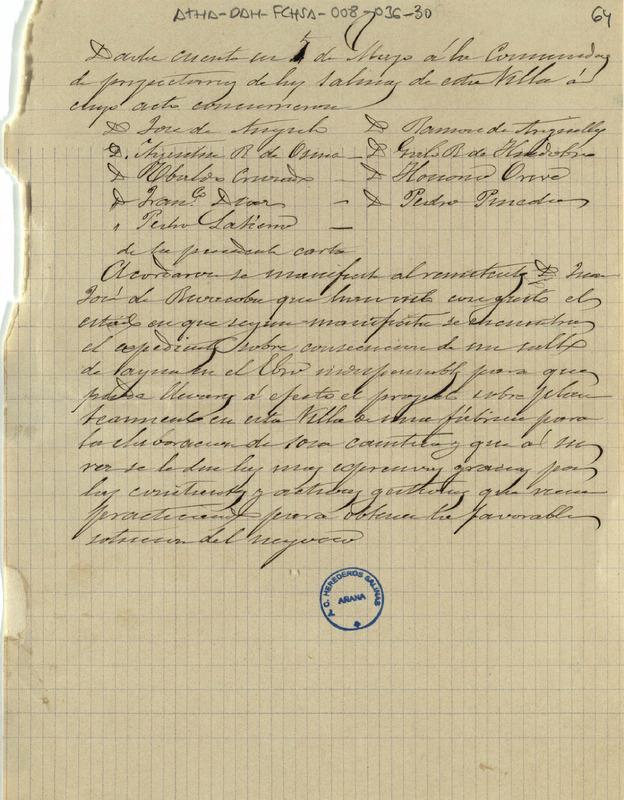 ATHA-DAH-FCHSA-008-036-30
64
Dada cuenta en 5 de Mayo á la Comunidad
de propietarios de las salinas de esta Villa á
cuyo acto concurrieron
D Jose de D Ramon de
D. R de Osma — D R de
D Ubaldo — D Honorio Orive
D Franco — D Pedro Pinedo
" Pedro —
de la precedente carta
Acordaron se manifieste al remitente D Juan
José de que han visto con gusto el
estado en que segun manifiesta se encuentra
el espediente sobre consecucion de un salto
de agua en el Ebro indispensable para que
pueda llevarse á efecto el proyecto sobre plan
teamiento en esta Villa de una fábrica para
la elaboracion de sosa caustica y que al
se le den las mas espresivas gracias por
las constantes y activas gestiones que viene
practicando para obtener la favorable
solucion del negocio
A. C. HEREDEROS SALINAS
ARANA